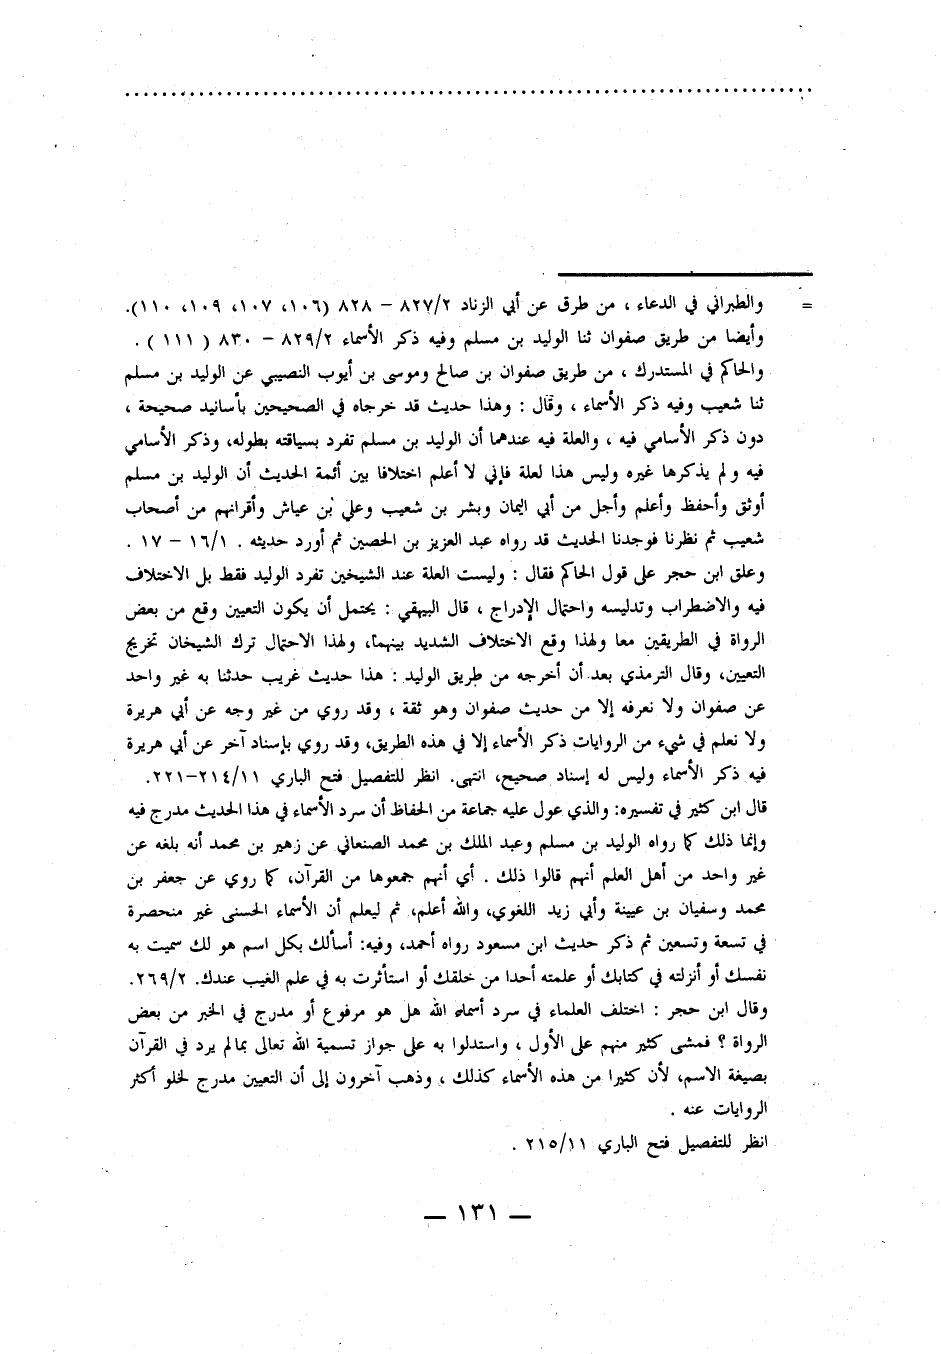 ..........................................................................
= والطبراني في الدعاء ، من طرق عن أبي الزناد ٨٢٧/٢ – ٨٢٨ (١٠٦، ١٠٧، ١٠٩، ١١٠).
وأيضا من طريق صفوان ثنا الوليد بن مسلم وفيه ذكر الأسماء ٨٢٩/٢ – ٨٣٠ ( ١١١ ) .
والحاكم في المستدرك ، من طريق صفوان بن صالح وموسى بن أيوب النصيبي عن الوليد بن مسلم
ثنا شعيب وفيه ذكر الأسماء ، وقال : وهذا حديث قد خرجاه في الصحيحين بأسانيد صحيحة ،
دون ذكر الأسامي فيه ، والعلة فيه عندهما أن الوليد بن مسلم تفرد بسياقته بطوله، وذكر الأسامي
فيه ولم يذكرها غيره وليس هذا لعلة فإني لا أعلم اختلافا بين أئمة الحديث أن الوليد بن مسلم
أوثق وأحفظ وأعلم وأجل من أبي اليمان وبشر بن شعيب وعلي بن عياش وأقرانهم من أصحاب
شعيب ثم نظرنا فوجدنا الحديث قد رواه عبد العزيز بن الحصين ثم أورد حديثه . ١٦/١ – ١٧ .
وعلق ابن حجر على قول الحاكم فقال : وليست العلة عند الشيخين تفرد الوليد فقط بل الاختلاف
فيه والاضطراب وتدليسه واحتمال الإدراج ، قال البيهقي : يحتمل أن يكون التعيين وقع من بعض
الرواة في الطريقين معا ولهذا وقع الاختلاف الشديد بينهما، ولهذا الاحتمال ترك الشيخان تخريج
التعيين، وقال الترمذي بعد أن أخرجه من طريق الوليد : هذا حديث غريب حدثنا به غير واحد
عن صفوان ولا نعرفه إلا من حديث صفوان وهو ثقة ، وقد روي من غير وجه عن أبي هريرة
ولا نعلم في شيء من الروايات ذكر الأسماء إلا في هذه الطريق، وقد روي بإسناد آخر عن أبي هريرة
فيه ذكر الأسماء وليس له إسناد صحيح، انتهى. انظر للتفصيل فتح الباري ٢١٤/١١–٢٢١.
قال ابن كثير في تفسيره: والذي عول عليه جماعة من الحفاظ أن سرد الأسماء في هذا الحديث مدرج فيه
وإنما ذلك كما رواه الوليد بن مسلم وعبد الملك بن محمد الصنعاني عن زهير بن محمد أنه بلغه عن
غير واحد من أهل العلم أنهم قالوا ذلك . أي أنهم جمعوها من القرآن، كما روي عن جعفر بن
محمد وسفيان بن عيينة وأبي زيد اللغوي، والله أعلم، ثم ليعلم أن الأسماء الحسنى غير منحصرة
في تسعة وتسعين ثم ذكر حديث ابن مسعود رواه أحمد، وفيه: أسألك بكل اسم هو لك سميت به
نفسك أو أنزلته في كتابك أو علمته أحدا من خلقك أو استأثرت به في علم الغيب عندك. ٢٦٩/٢.
وقال ابن حجر : اختلف العلماء في سرد أسماء الله هل هو مرفوع أو مدرج في الخبر من بعض
الرواة ؟ فمشى كثير منهم على الأول ، واستدلوا به على جواز تسمية الله تعالى بمالم يرد في القرآن
بصيغة الاسم، لأن كثيرا من هذه الأسماء كذلك ، وذهب آخرون إلى أن التعيين مدرج لخلو أكثر
الروايات عنه .
انظر للتفصيل فتح الباري ٢١٥/١١ .
— ١٣١ —